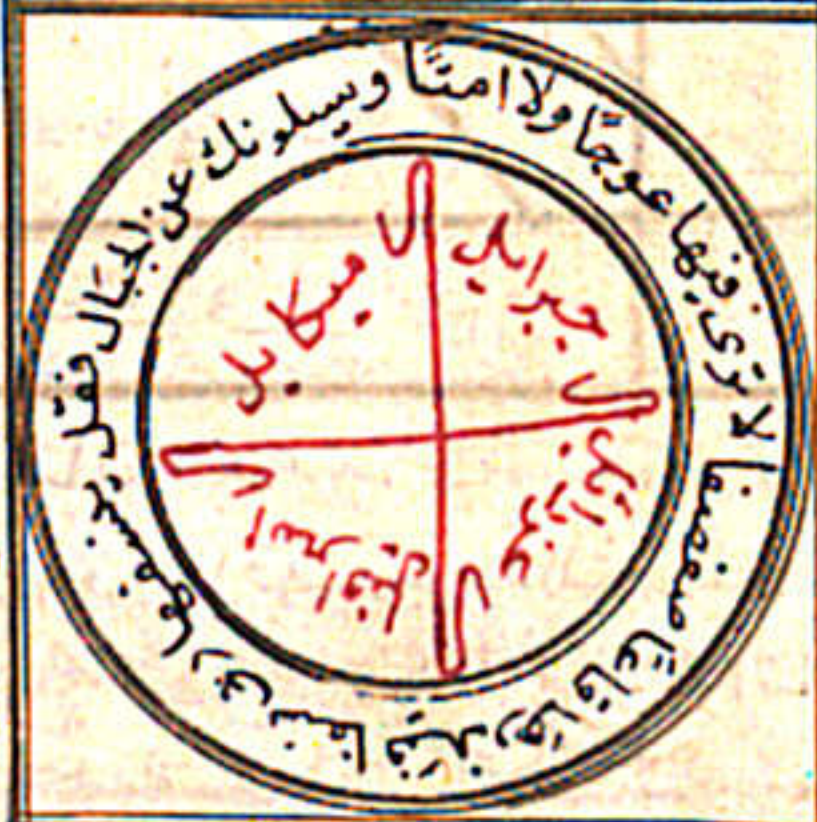 ويسلونك عن الجبال فقل ينسفها ربى نسفا فيذرها قاعًا صفصفا لا ترى فيها عوجًا ولا امتًا
جبرايل
ميكايل
اسرافيل
عزرائيل